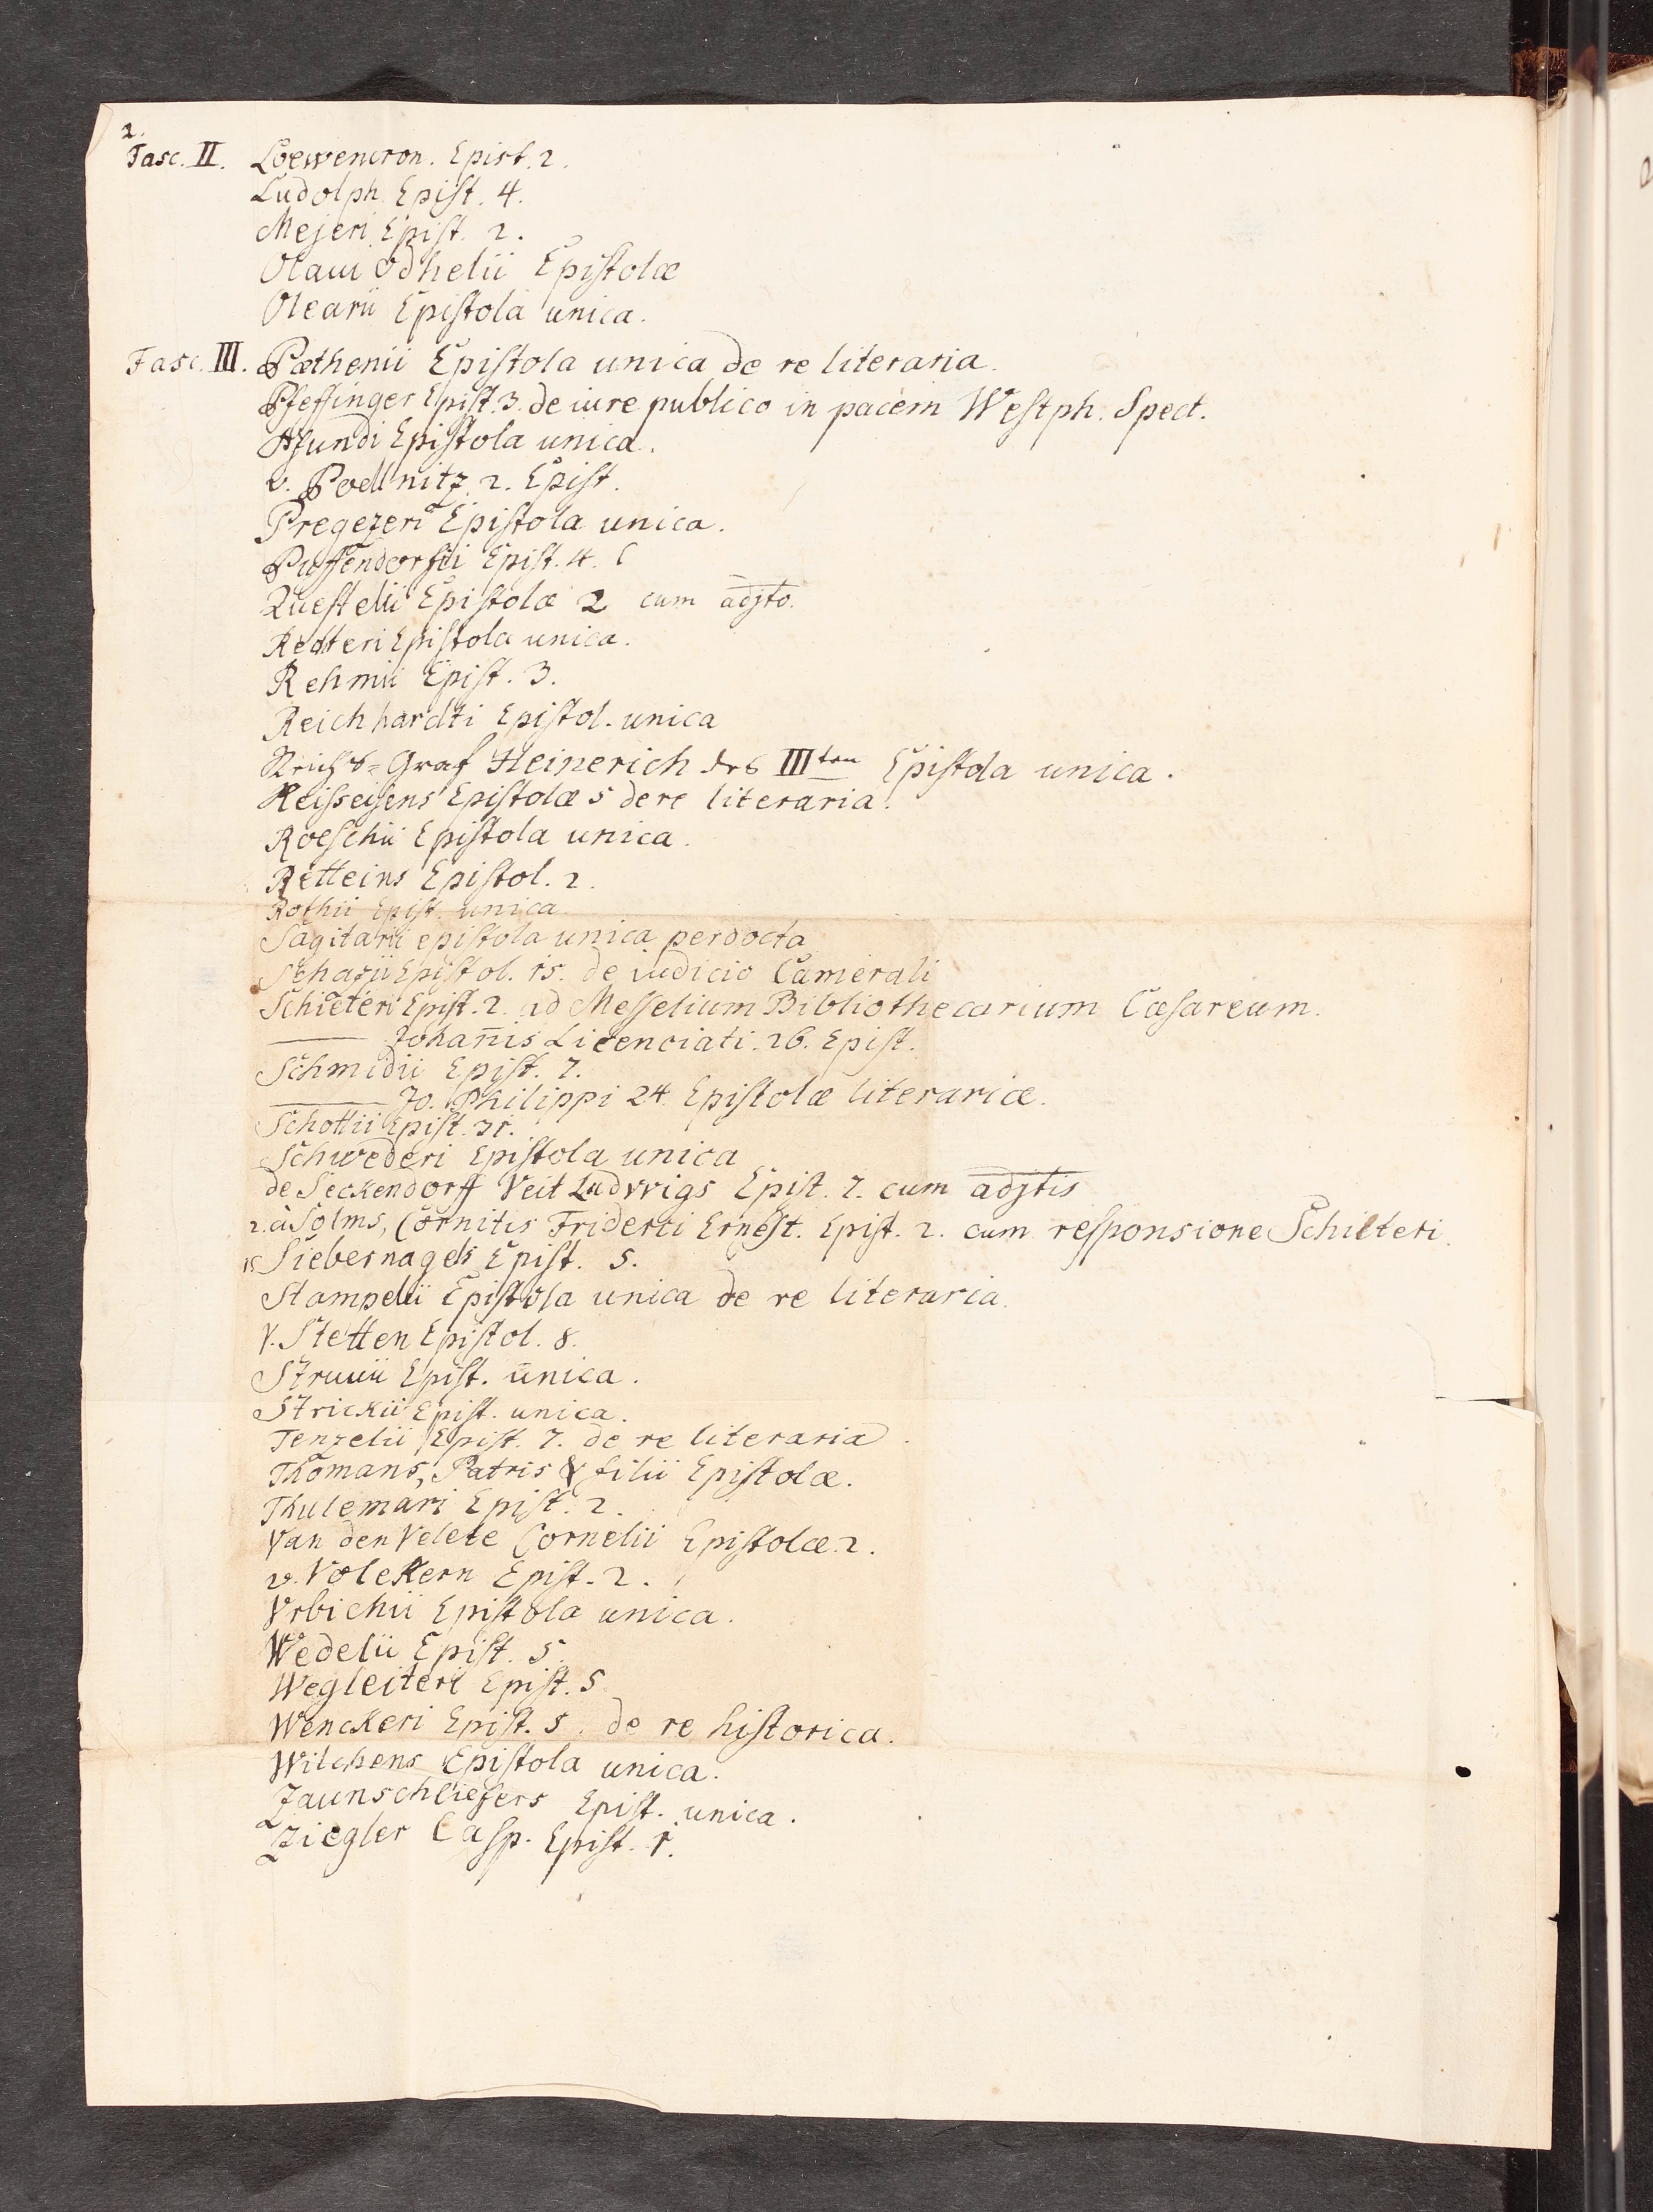 2.
Fasc. II. Loewencron. Epist. 2.
Ludolph Epist. 4.
Mejeri Epist. 2.
Olaui Odhelii Epistolæ
Olearii Epistola unica.
Fasc. III. Pathenii Epistola unica de re literaria.
Pfeffinger Epist. 3. de iure publico in pacem Westph. Spect.
Pfundi Epistola unica.
v. Poellnitz 2. Epist.
Pregezeri Epistola unica.
Puffendorfii Epist. 4.
Questelii Epistolæ 2 cum adjto.
Redteri Epistola unica.
Rehmii Epist. 3.
Reichhardti Epistol. unica
Reichs=Graf Heinerich des IIIten Epistola unica.
Reisseisens Epistolæ 5 de re literaria.
Roeschii Epistola unica.
Retteins Epistol. 2.
Rothii Epist. unica.
Sagitarii epistola unica perdocta
Schazii Epistol. 15. de iudicio Camerali
Schilteri Epist. 2. ad Messelium Bibliothecarium Cæsareum.
——— Johañis Licenciati. 26. Epist.
Schmidii Epist. 7.
——— Jo. Philippi 24 Epistolæ literariæ.
Schottii Epist. 31.
Schwederi Epistola unica
de Seckendorff Veit Ludvvigs Epist. 7. cum adjtis
2. à Solms, Comitis Friderici Ernest. Epist. 2. cum responsione Schilteri.
1. Siebernagels Epist. 5.
Stampelii Epistola unica de re literaria.
v. Stetten Epistol. 8.
Struuii Epist. unica.
Strickii Epist. unica.
Tenzelii Epist. 7. de re literaria.
Thomans, Patris & filii Epistolæ.
Thulemari Epist. 2.
Van den Velde Cornelii Epistolæ 2.
v. Volckern Epist. 2.
Vrbichii Epistola unica.
Wedelii Epist. 5.
Wegleiteri Epist. 5
Wenckeri Epist. 5. de re historica.
Wilchens Epistola unica.
Zaunschliefers Epist. unica.
Ziegler Casp. Epist. 1.